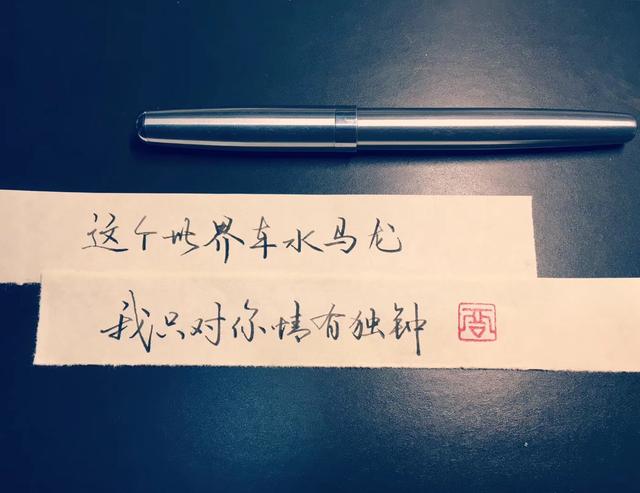 这个世界车水马龙
我只对你情有独钟